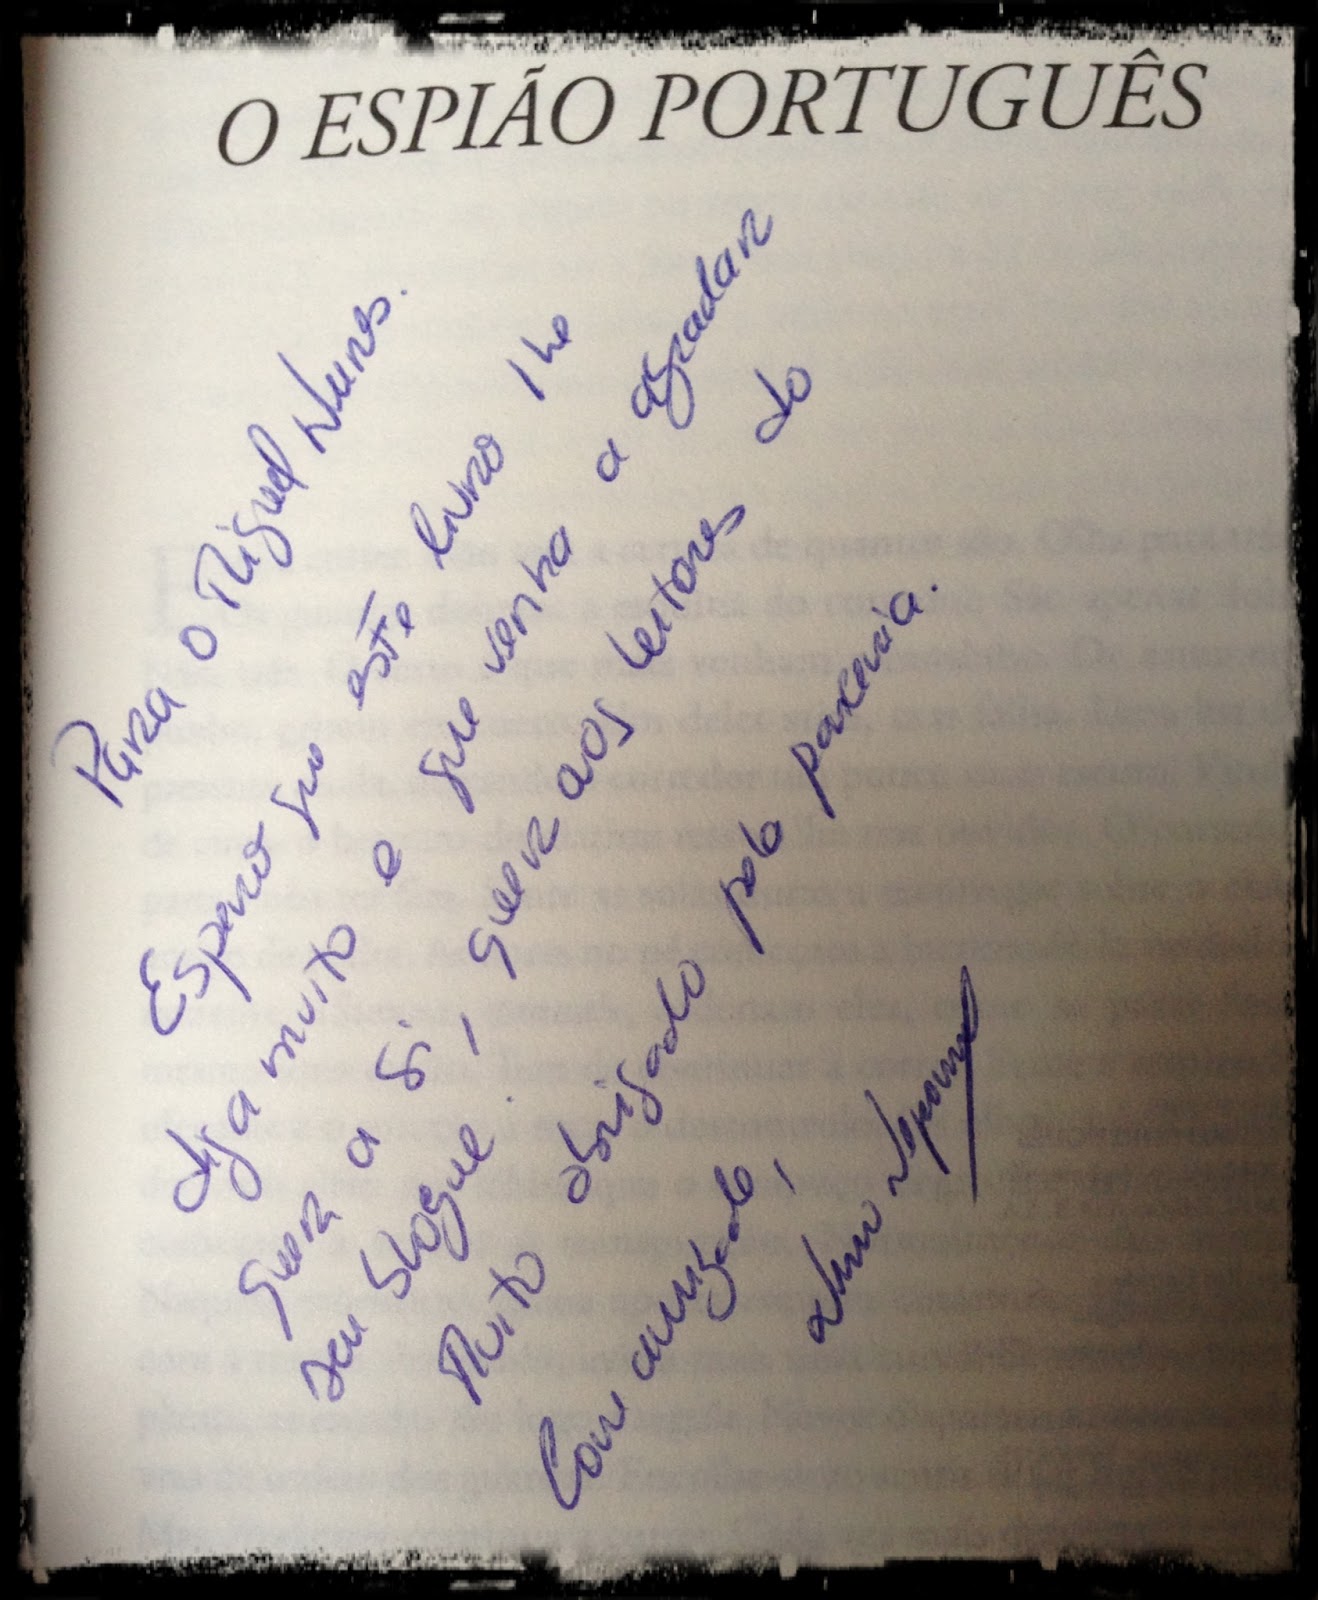 O ESPIÃO PORTUGUÊS
Para o Miguel Nunes.
Espero que este livro lhe
diga muito e que venha a agradar
quer a si, quer aos leitores do
seu blogue.
Muito obrigado pela parceria.
Com amizade,
Nuno Nepomuceno